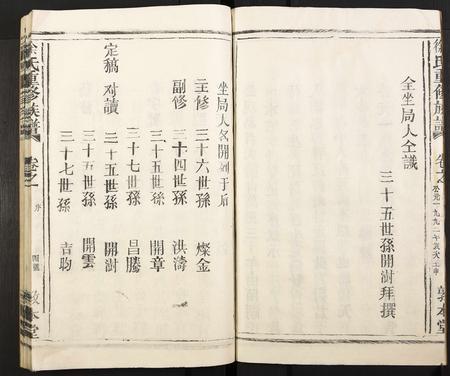 徐氏重修族譜
卷之
公元一九九二年
敦本堂
全坐局人仝議
三十五世孫開澍拜撰
坐局人名開列于后
主修 三十六世孫 燦金
副修 三十四世孫 洪濤
三十五世孫 開章
三十七世孫 昌騰
定稿 对讀 三十五世孫 開澍
三十五世孫 開雲
三十七世孫 吉昀
徐氏重修族譜
卷之
序
敦本堂